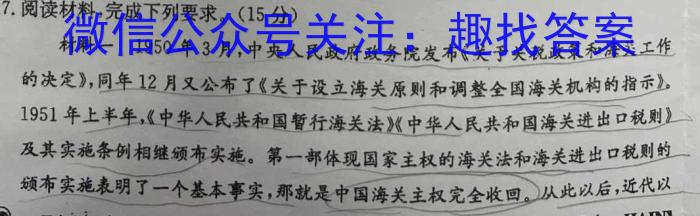 7.阅读材料,完成下列要求。(15分)
微信公众号关注：趣找答案
材料一 1950年3月,中央人民政府政务院发布《关于关税政策和海关工作
的决定》,同年12月又公布了《关于设立海关原则和调整全国海关机构的指示》。
1951年上半年,《中华人民共和国暂行海关法》《中华人民共和国海关进出口税则》
及其实施条例相继颁布实施。第一部体现国家主权的海关法和海关进出口税则的
颁布实施表明了一个基本事实,那就是中国海关主权完全收回。从此以后,近代以